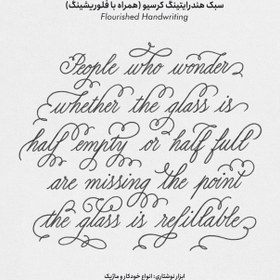 سبک هندرایتینگ کرسیو (همراه با فلوریشینگ)
Flourished Handwriting
People who wonder
whether the glass is
half empty or half full
are missing the point
the glass is refillable
ابزار نوشتاری: انواع خودکار و ماژیک